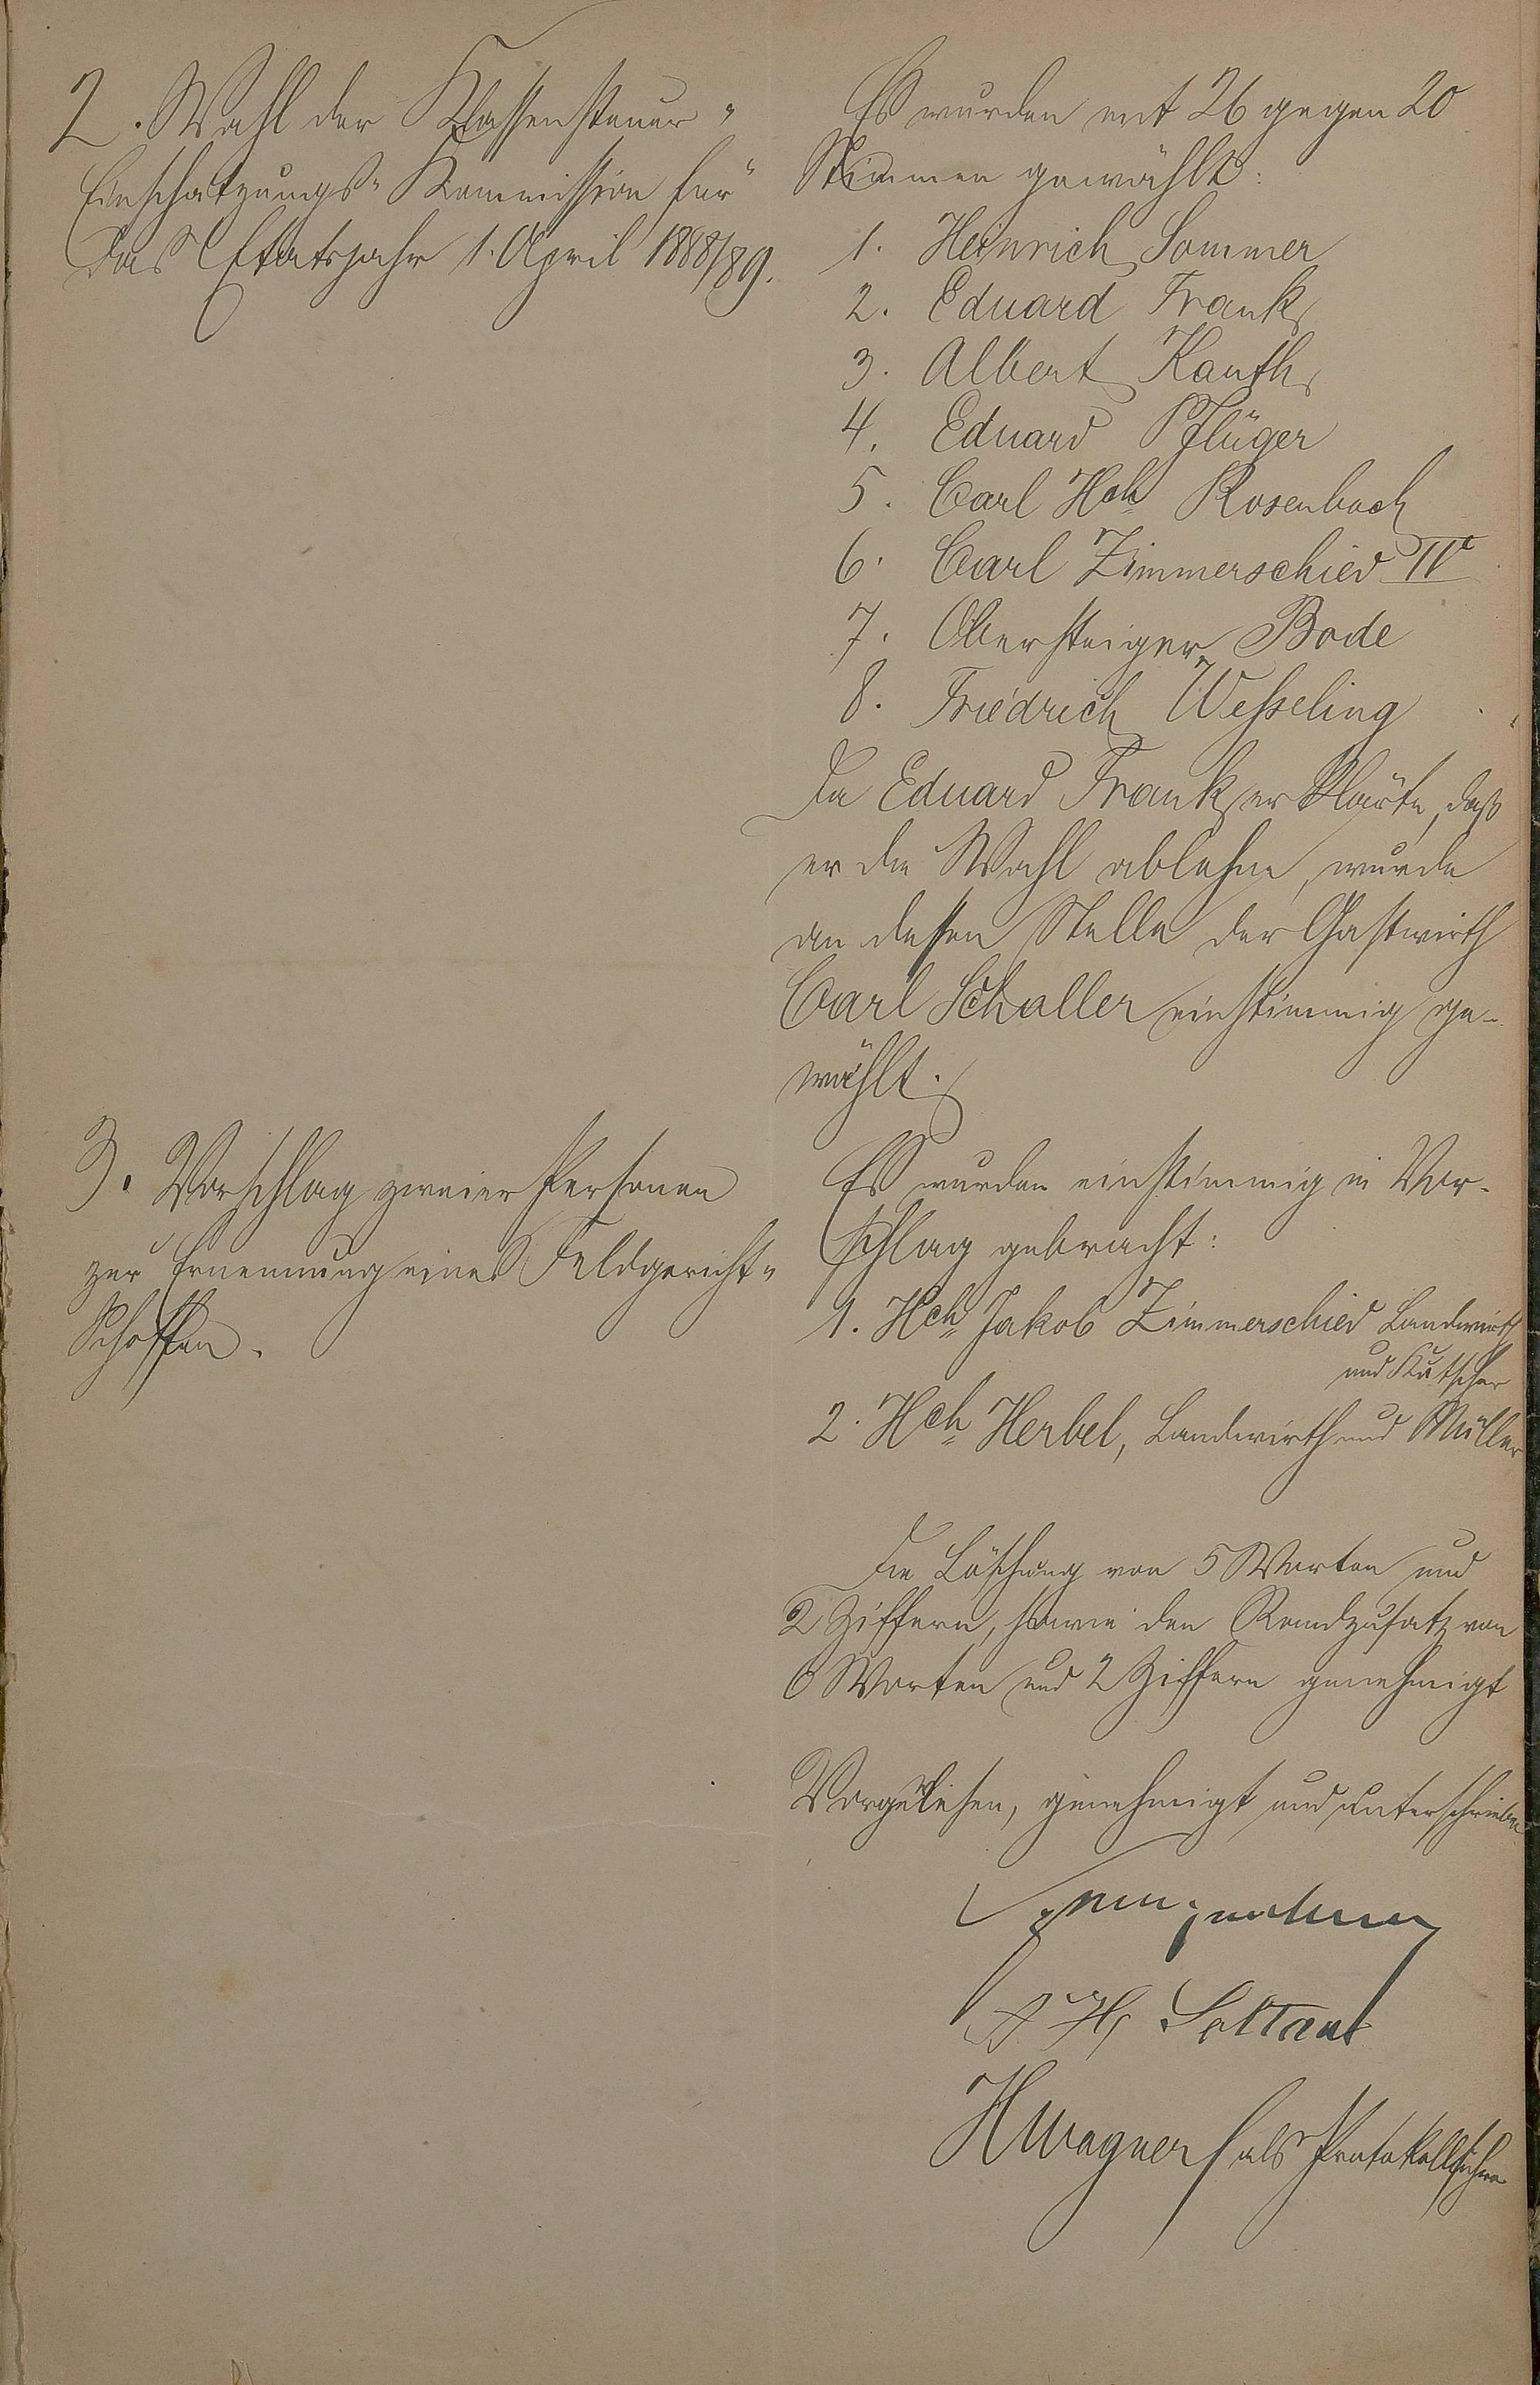 2. Wahl der Klassensteuer-
Einschätzungs-Kommission für
das Etatsjahr 1. April 1888/89.
Es wurden mit 26 gegen 20
Stimmen gewählt:
1. Heinrich Sommer
2. Eduard Frank
3. Albert Kauth
4. Eduard Pflüger
5. Carl Hch Rosenbach
6. Carl Zimmerschied IV
7. Obersteiger Bode
8. Friedrich Wesseling
Da Eduard Frank erklärte, daß
er die Wahl ablehne, wurde
an dessen Stelle der Gastwirth
Carl Schaller einstimmig ge-
wählt.
3. Vorschlag zweier Personen
zur Ernennung eines Feldgericht-
Schöffen.
Es wurden einstimmig in Vor-
schlag gebracht:
1. Hch Jakob Zimmerschied Landwirth
und Kutscher
2. Hch Herbel, Landwirth und Müller
Die Löschung von 5 Worten und
2 Ziffern, sowie den Randzusatz von
6 Worten und 2 Ziffern genehmigt
Vorgelesen, genehmigt und unterschrieben
H Wagner als Protokollführer